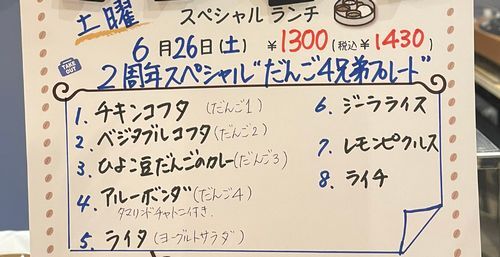 土曜
スペシャル ランチ
6月26日(土) ¥1300(税込¥1430)
TAKE OUT
2周年スペシャル"だんご4兄弟プレート"
1. チキンコフタ(だんご1)
2. ベジタブルコフタ(だんご2)
3. ひよこ豆だんごのカレー(だんご3)
4. アルーボンダ(だんご4)
タマリンドチャトニ付き.
5. ライタ(ヨーグルトサラダ)
6. ジーラライス
7. レモンピクルス
8. ライチ